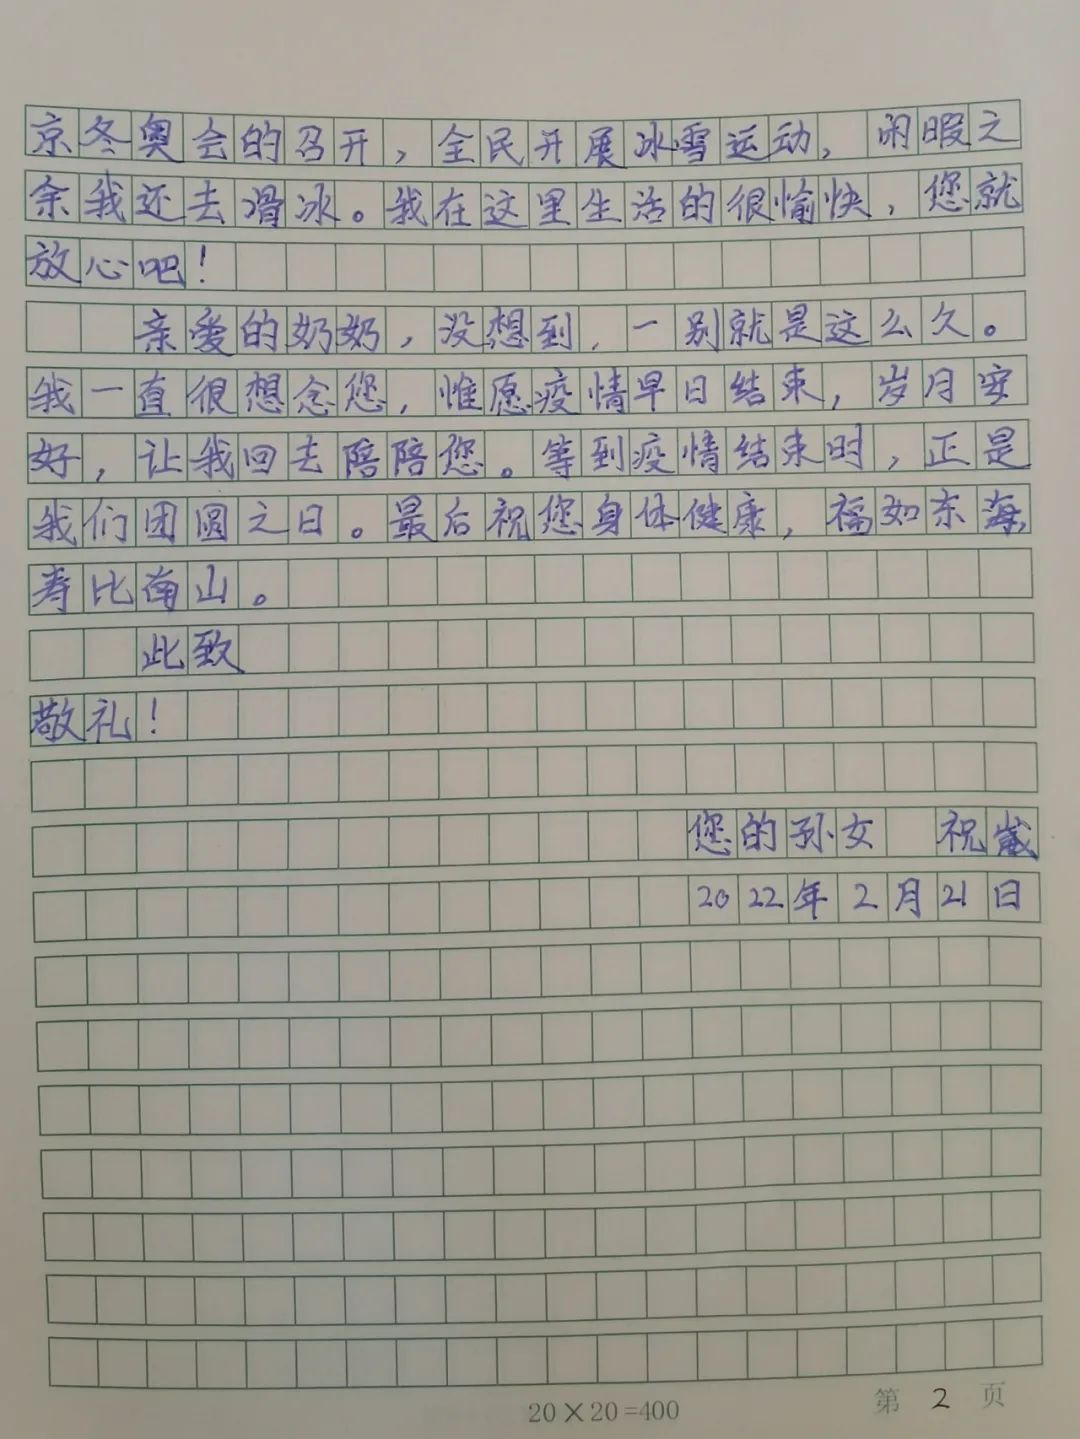 京冬奥会的召开，全民开展冰雪运动，闲暇之
余我还去滑冰。我在这里生活的很愉快，您就
放心吧！
亲爱的奶奶，没想到，一别就是这么久。
我一直很想念您，惟愿疫情早日结束，岁月安
好，让我回去陪陪您。等到疫情结束时，正是
我们团圆之日。最后祝您身体健康，福如东海，
寿比南山。
此致
敬礼！
您的孙女 祝
2022年2月21日
20×20=400
第 2 页